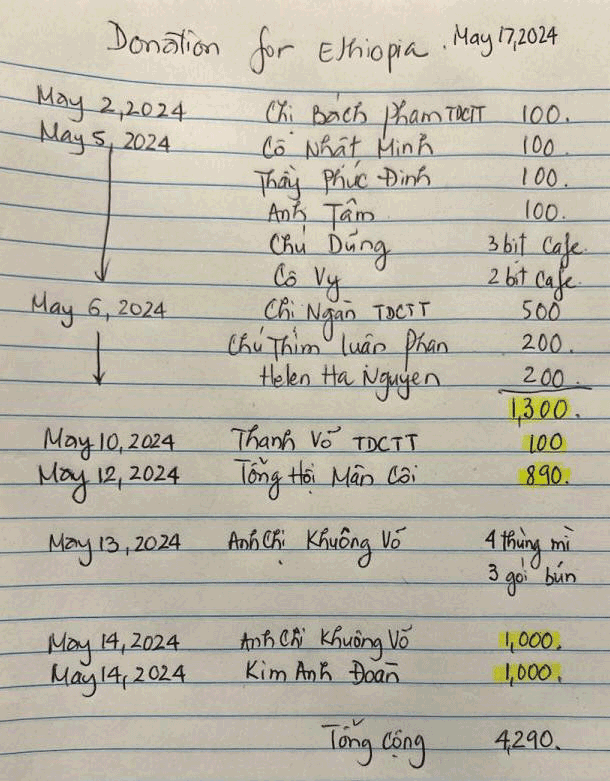 Donation for Ethiopia. May 17, 2024
May 2, 2024 Chi Bách Pham TDCTT 100.
May 5, 2024 Cô Nhất Minh 100.
Thầy Phúc Đinh 100.
Anh Tâm 100.
Chú Dũng 3 bịt Cafe.
Cô Vy 2 bịt Cafe.
May 6, 2024 Chi Ngân TDCTT 500
Chú Thím Luân Phan 200.
Helen Ha Nguyen 200.
1,300.
May 10, 2024 Thanh Võ TDCTT 100
May 12, 2024 Tổng Hội Mân Côi 890.
May 13, 2024 Anh Chị Khuông Võ 4 thùng mì
3 gói bún
May 14, 2024 Anh Chị Khuông Võ 1,000.
May 14, 2024 Kim Anh Đoàn 1,000.
Tổng Cộng 4,290.